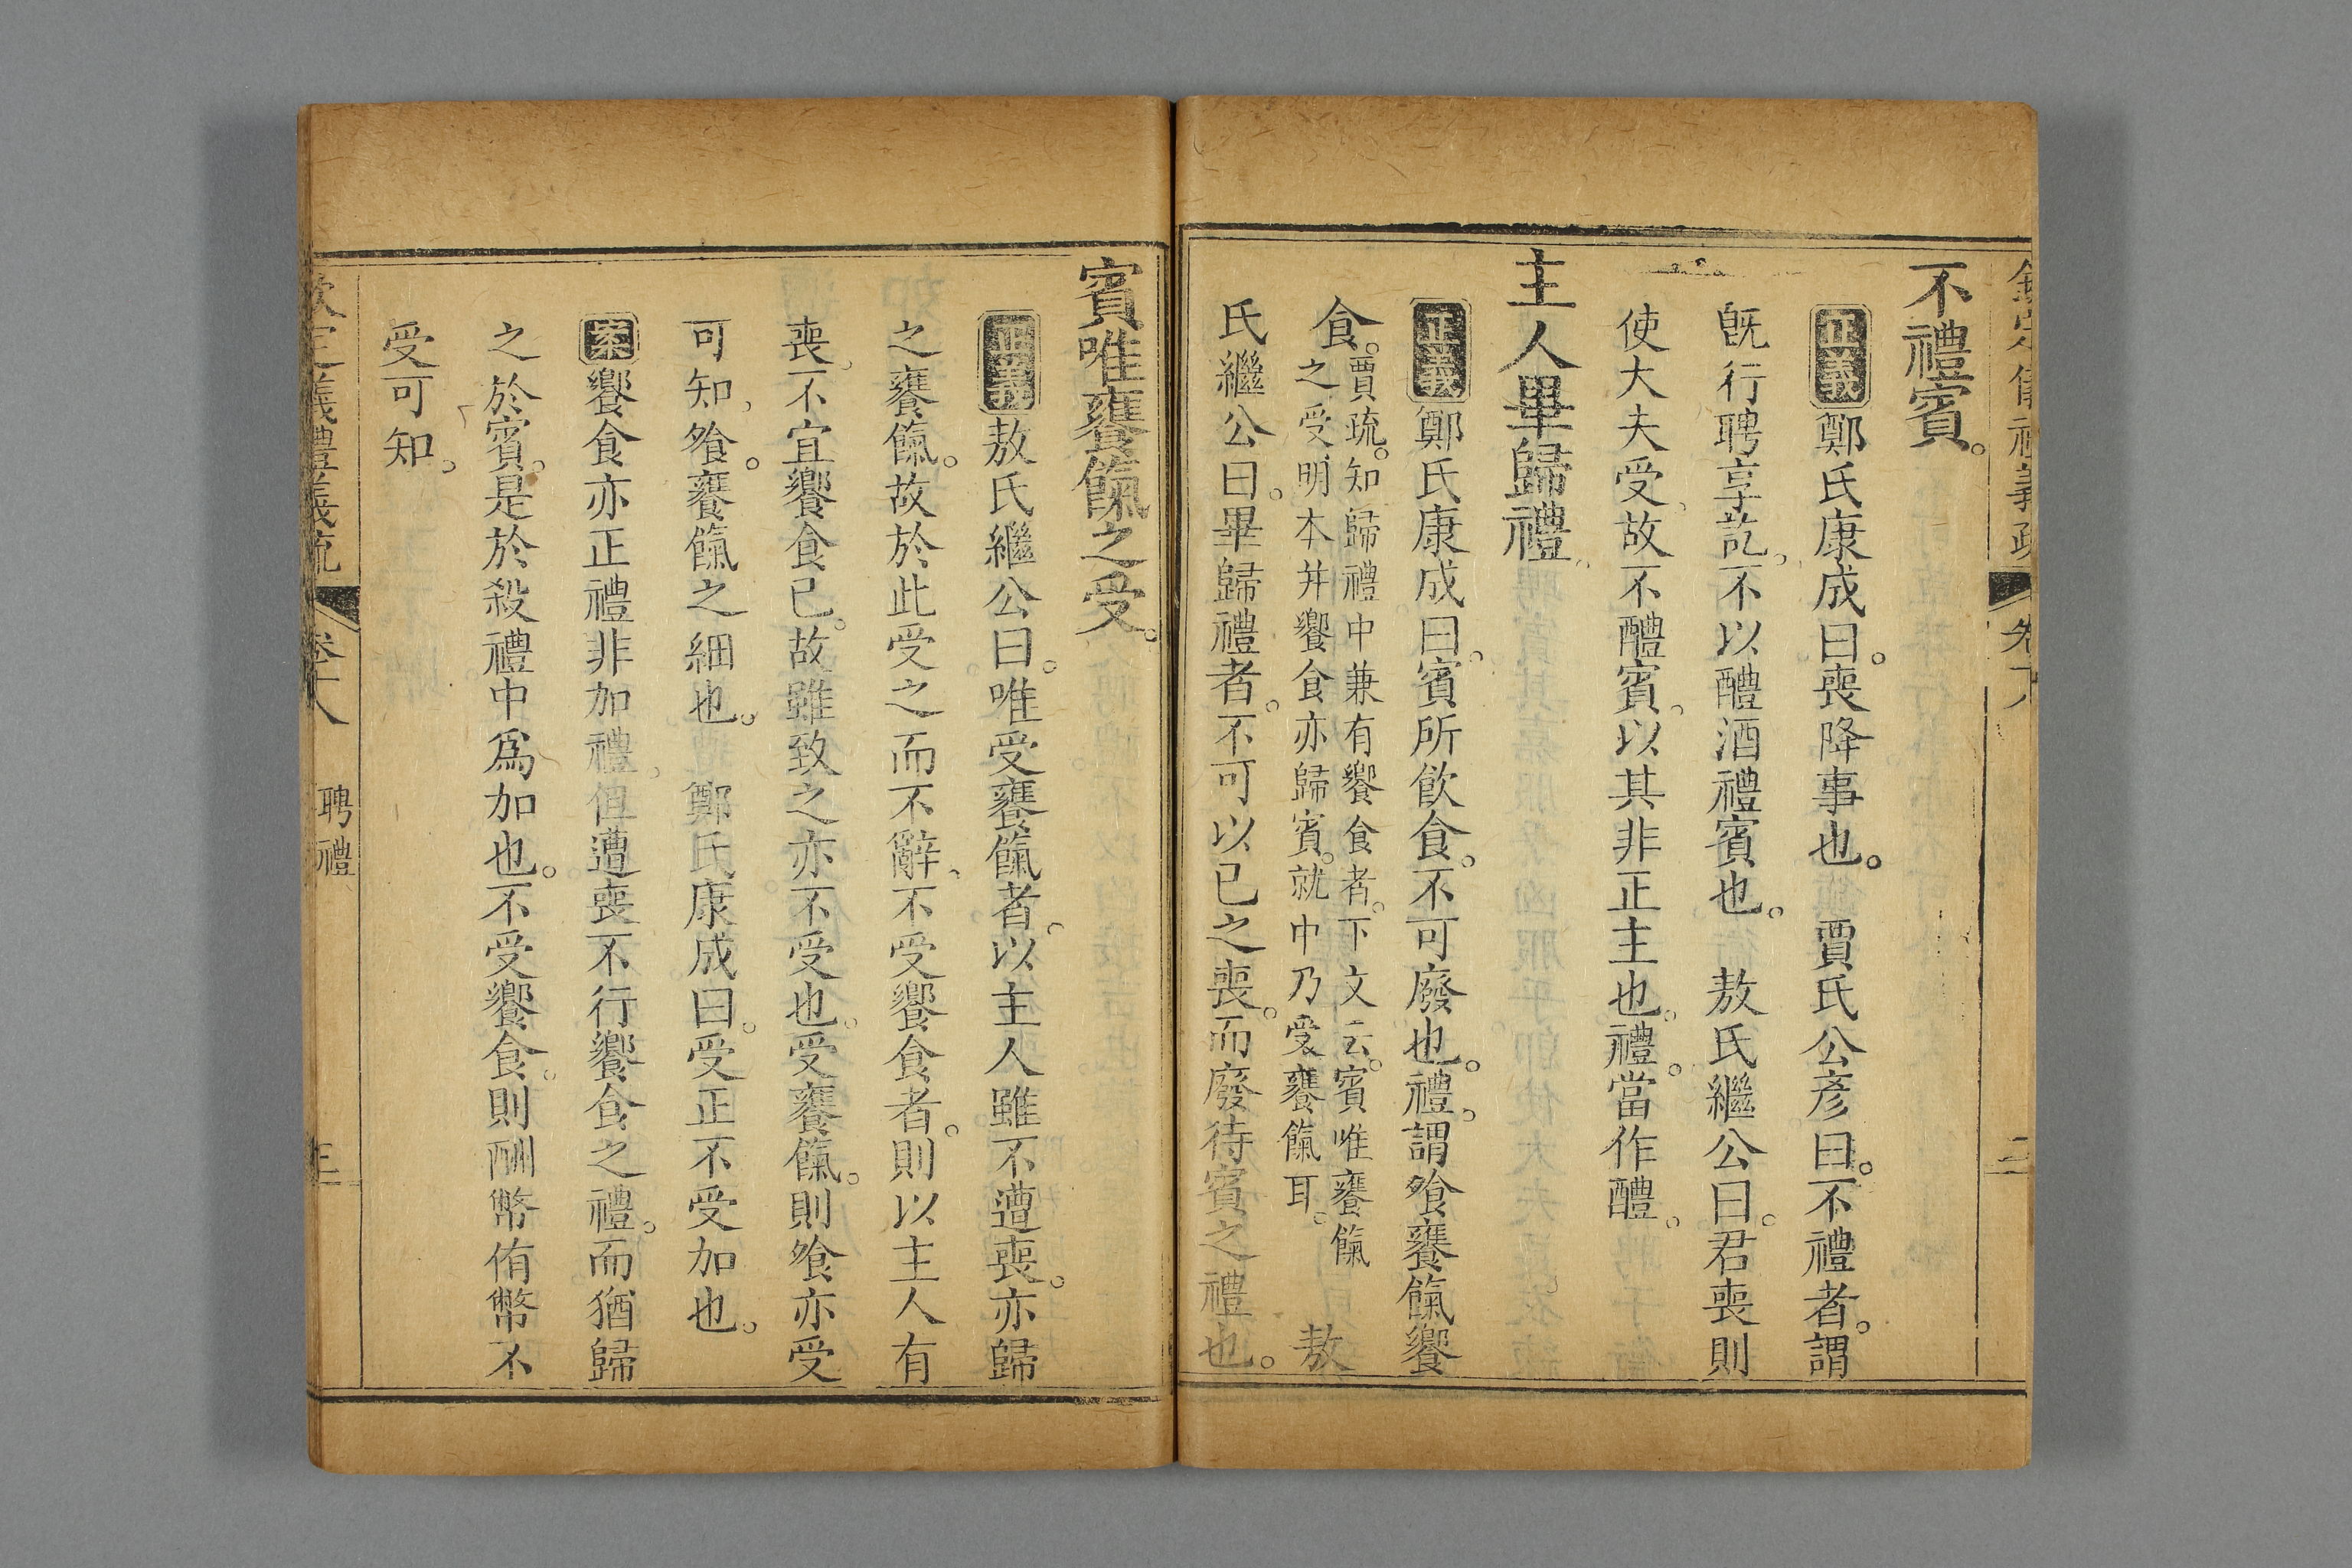 不禮賓。
正義鄭氏康成曰。喪降事也。 賈氏公彥曰。不禮者。謂
旣行聘享訖、不以醴酒禮賓也。 敖氏繼公曰。君喪則
使大夫受、故不醴賓、以其非正主也。禮。當作醴。
主人畢歸禮、
正義鄭氏康成曰、賓所飲食。不可廢也。禮、謂飧饔餼饗
食。
賈疏。知歸禮中兼有饗食者。下文云。賓唯饔餼
之受、明本幷饗食亦歸賓。就中乃受饔餼耳。
敖
氏繼公曰。畢歸禮者。不可以已之喪。而廢待賓之禮也。
賓唯饔餼之受。
正義敖氏繼公曰。唯受饔餼者。以主人雖不遭喪。亦歸
之饔餼。故於此受之而不辭、不受饗食者。則以主人有
喪、不宜饗食已。故雖致之亦不受也。受饔餼。則飧亦受
可知、飧。饔餼之細也。 鄭氏康成曰。受正不受加也。
案饗食亦正禮非加禮、但遭喪不行饗食之禮。而猶歸
之於賓。是於殺禮中爲加也。不受饗食。則酬幣侑幣不
受可知。
聘禮